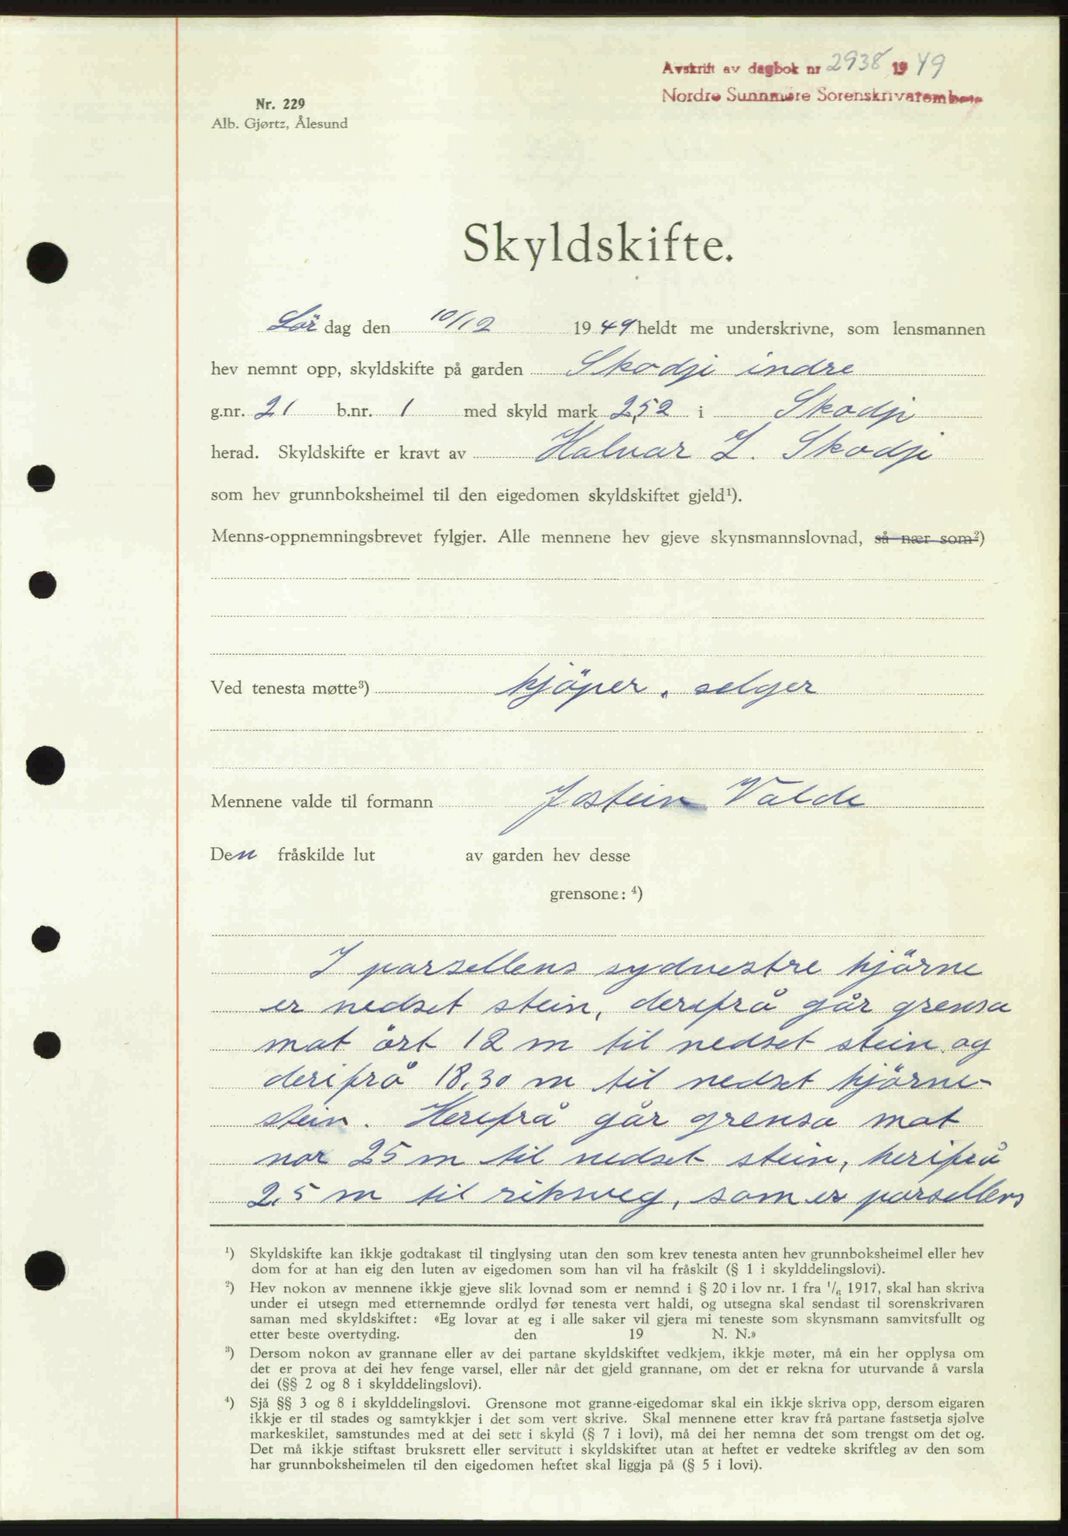 Avskrift av dagbok nr 2938 1949
Nordre Sunnmøre Sorenskrivarembete
Nr. 229
Alb. Gjørtz, Ålesund
Skyldskifte.
Lör dag den 10/12 1949 heldt me underskrivne, som lensmannen
hev nemnt opp, skyldskifte på garden Skodji indre
g.nr. 21 b.nr. 1 med skyld mark 2,52 i Skodji
herad. Skyldskifte er kravt av Halvar L. Skodji
som hev grunnboksheimel til den eigedomen skyldskiftet gjeld¹).
Menns-oppnemningsbrevet fylgjer. Alle mennene hev gjeve skynsmannslovnad, så nær som²)
Ved tenesta møtte³) kjöper, selger
Mennene valde til formann Jostein Valde
Den fråskilde lut av garden hev desse
grensone: ⁴)
I parsellens sydvestre hjörne
er nedset stein, derifrå går grensa
mot öst 12 m til nedset stein og
derifrå 18,30 m til nedset hjörne-
stein. Herifrå går grensa mot
nor 25 m til nedset stein, herifrå
2,5 m til riksveg, som er parsellens
¹) Skyldskifte kan ikkje godtakast til tinglysing utan den som krev tenesta anten hev grunnboksheimel eller hev
dom for at han eig den luten av eigedomen som han vil ha fråskilt (§ 1 i skylddelingslovi).
²) Hev nokon av mennene ikkje gjeve slik lovnad som er nemnd i § 20 i lov nr. 1 fra 1/6 1917, skal han skriva
under ei utsegn med etternemnde ordlyd før tenesta vert haldi, og utsegna skal sendast til sorenskrivaren
saman med skyldskiftet: «Eg lovar at eg i alle saker vil gjera mi teneste som skynsmann samvitsfullt og
etter beste overtyding. den 19 N. N.»
³) Dersom nokon av grannane eller av dei partane skyldskiftet vedkjem, ikkje møter, må ein her opplysa om
det er prova at dei hev fenge varsel, eller når det gjeld grannane, om det er rekna for uturvande å varsla
dei (§§ 2 og 8 i skylddelingslovi).
⁴) Sjå §§ 3 og 8 i skylddelingslovi. Grensone mot granne-eigedomar skal ein ikkje skriva opp, dersom eigaren
ikkje er til stades og samtykkjer i det som vert skrive. Skal mennene etter krav frå partane fastsetja sjølve
markeskilet, samstundes med at dei sett i skyld (§ 7 i lovi), må dei her nemna det som trengst om det og.
Det må ikkje stiftast bruksrett eller servitutt i skyldskiftet utan at heftet er vedteke skriftleg av den som
har grunnboksheimelen til den eigedomen heftet skal liggja på (§ 5 i lovi).